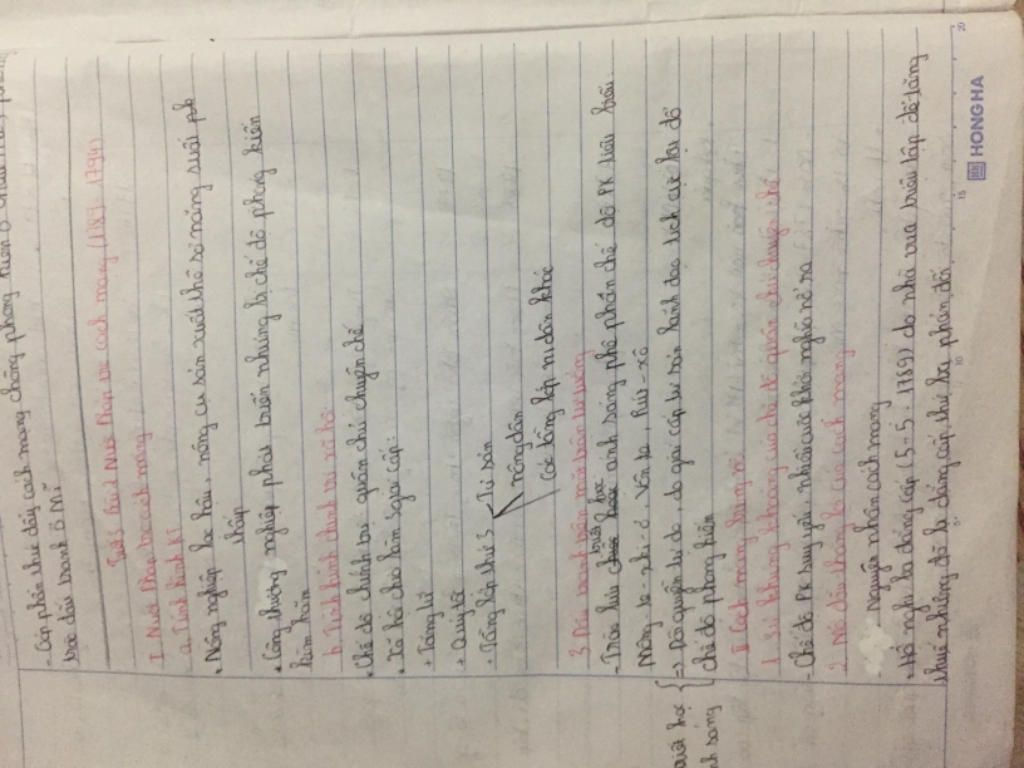 - Góp phần thúc đẩy cách mạng chống phong kiến ở châu Âu, phong
trào đấu tranh ở Mĩ
Tiết 3 Bài 2 Nước Pháp và cách mạng (1789 - 1794)
I Nước Pháp trước cách mạng
a. Tình hình KT
+ Nông nghiệp lạc hậu, nông cụ sản xuất thô sơ năng suất
thấp
+ Công thương nghiệp phát triển nhưng bị chế độ phong kiến
kìm hãm
b. Tình hình chính trị xã hội
+ Chế độ chính trị: quân chủ chuyên chế
+ Xã hội chia làm đẳng cấp:
+ Tăng lữ
+ Quý tộc
+ Đẳng cấp thứ 3
Tư sản
nông dân
Các tầng lớp nhân dân khác
3 Đấu tranh trên mặt trận tư tưởng
- Trào lưu triết học ánh sáng phê phán chế độ PK tiêu biểu:
Mông-te-xki-ơ, Vôn-te, Rút-xô
triết học
ánh sáng
=> Đòi quyền tự do, do giai cấp tư sản lãnh đạo tích cực lật đổ
chế độ phong kiến
II Cách mạng bùng nổ
1 Sự khủng khoảng của chế độ quân chủ chuyên chế
- Chế độ PK suy yếu, nhân dân khởi nghĩa nổ ra
2 Mở đầu thắng lợi của cách mạng
- Nguyên nhân cách mạng
+ Hội nghị ba đẳng cấp (5-5-1789) do nhà vua triệu tập để tăng
thuế nhưng đã bị đẳng cấp thứ ba phản đối
HONG HA
10
15
20